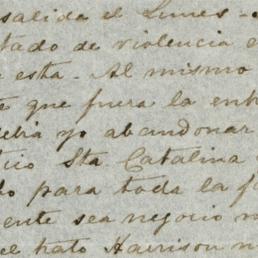 salida el Lunes -
tado de violencia e
esta - Al mismo
que fuera la ent
debia yo abandonar
icio Sta Catalina
do para toda la f
ente sea negocio
el hato Harrison n